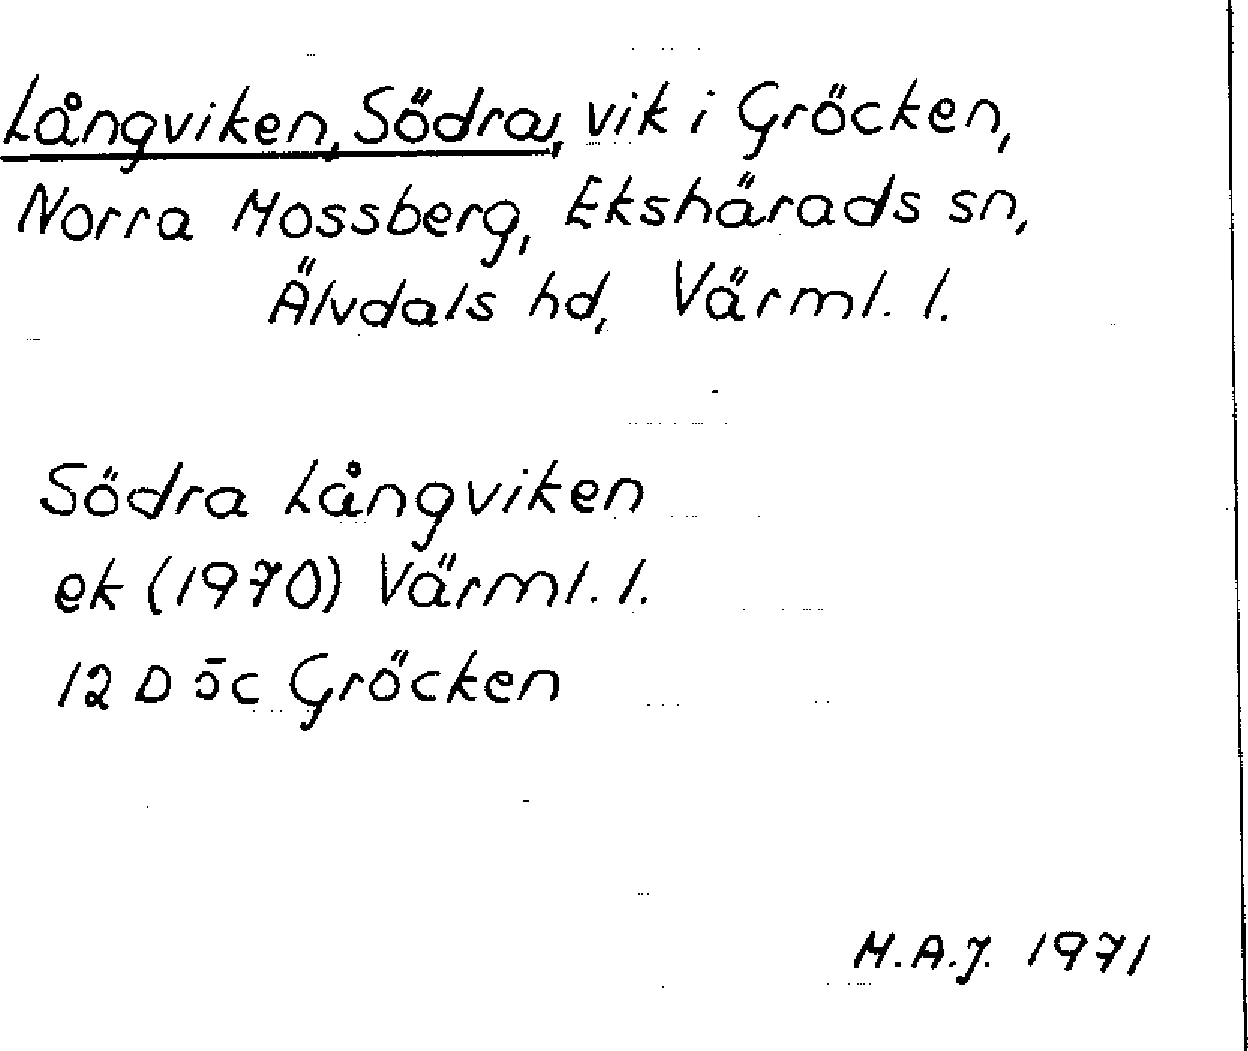 Långviken, Södra, vik i Gröcken,
Norra Mossberg, Ekshärads sn,
Älvdals hd, Värml. l.
Södra Långviken
ek (1970) Värml. l.
12 D öc Gröcken
M.A.J. 1971